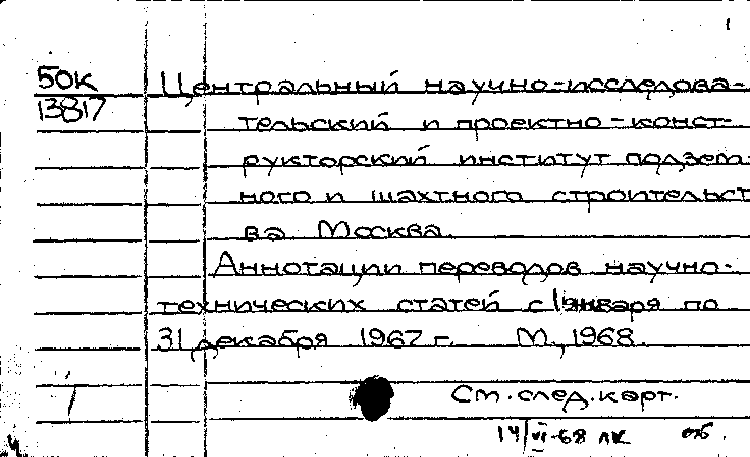 1
50К Центральный научно-исследова-
13817 тельский и проектно-конст-
рукторский институт подзем
ного и шахтного строительст
ва Москва.
Аннотации переводов научно-
технических статей с 1 января по
31 декабря 1967 г. М., 1968.
1 См. след. карт.
14/VI-68 лк об.